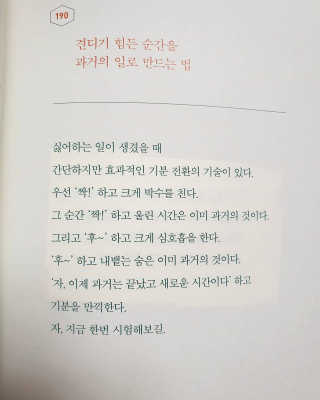 190
견디기 힘든 순간을
과거의 일로 만드는 법
싫어하는 일이 생겼을 때
간단하지만 효과적인 기분 전환의 기술이 있다.
우선 '짝!' 하고 크게 박수를 친다.
그 순간 '짝!' 하고 울린 시간은 이미 과거의 것이다.
그리고 '후~' 하고 크게 심호흡을 한다.
'후~' 하고 내뱉는 숨은 이미 과거의 것이다.
'자, 이제 과거는 끝났고 새로운 시간이다' 하고
기분을 만끽한다.
자, 지금 한번 시험해보길.